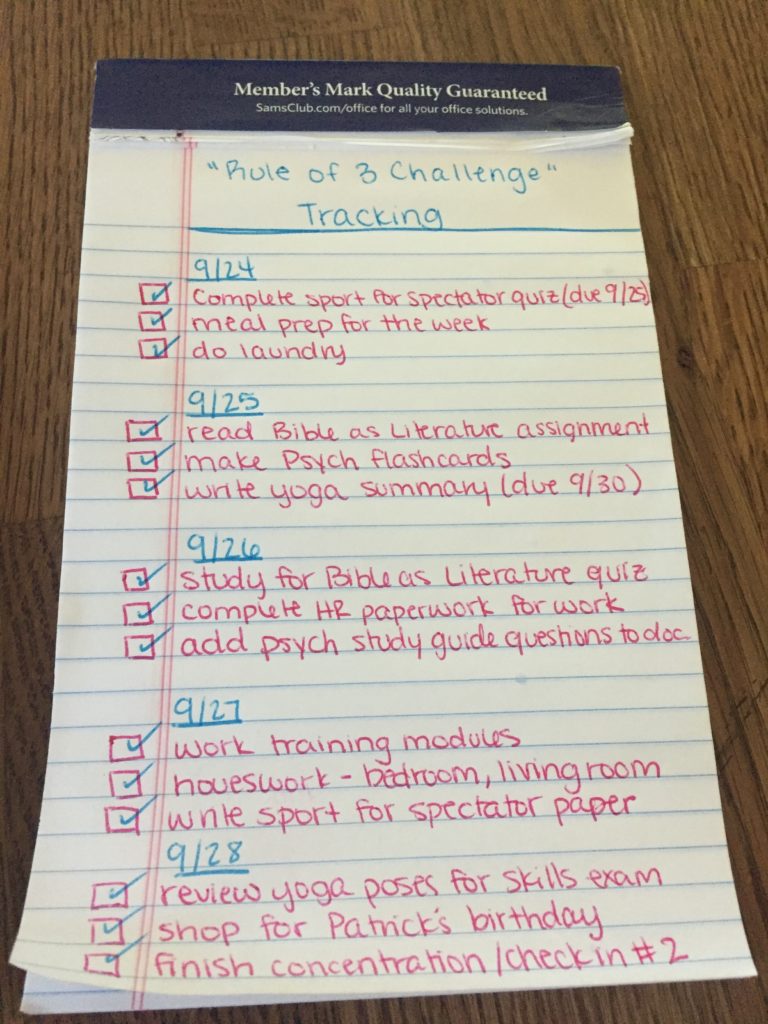 Member's Mark Quality Guaranteed
SamsClub.com/office for all your office solutions.
"Rule of 3 Challenge"
Tracking
9/24
complete sport for spectator quiz (due 9/25)
meal prep for the week
do laundry
9/25
read Bible as Literature assignment
make Psych flashcards
write yoga summary (due 9/30)
9/26
study for Bible as Literature quiz
complete HR paperwork for work
add psych study guide questions to doc.
9/27
work training modules
houeswork - bedroom, living room
write sport for spectator paper
9/28
review yoga poses for skills exam
shop for Patrick's birthday
finish concentration/check in #2